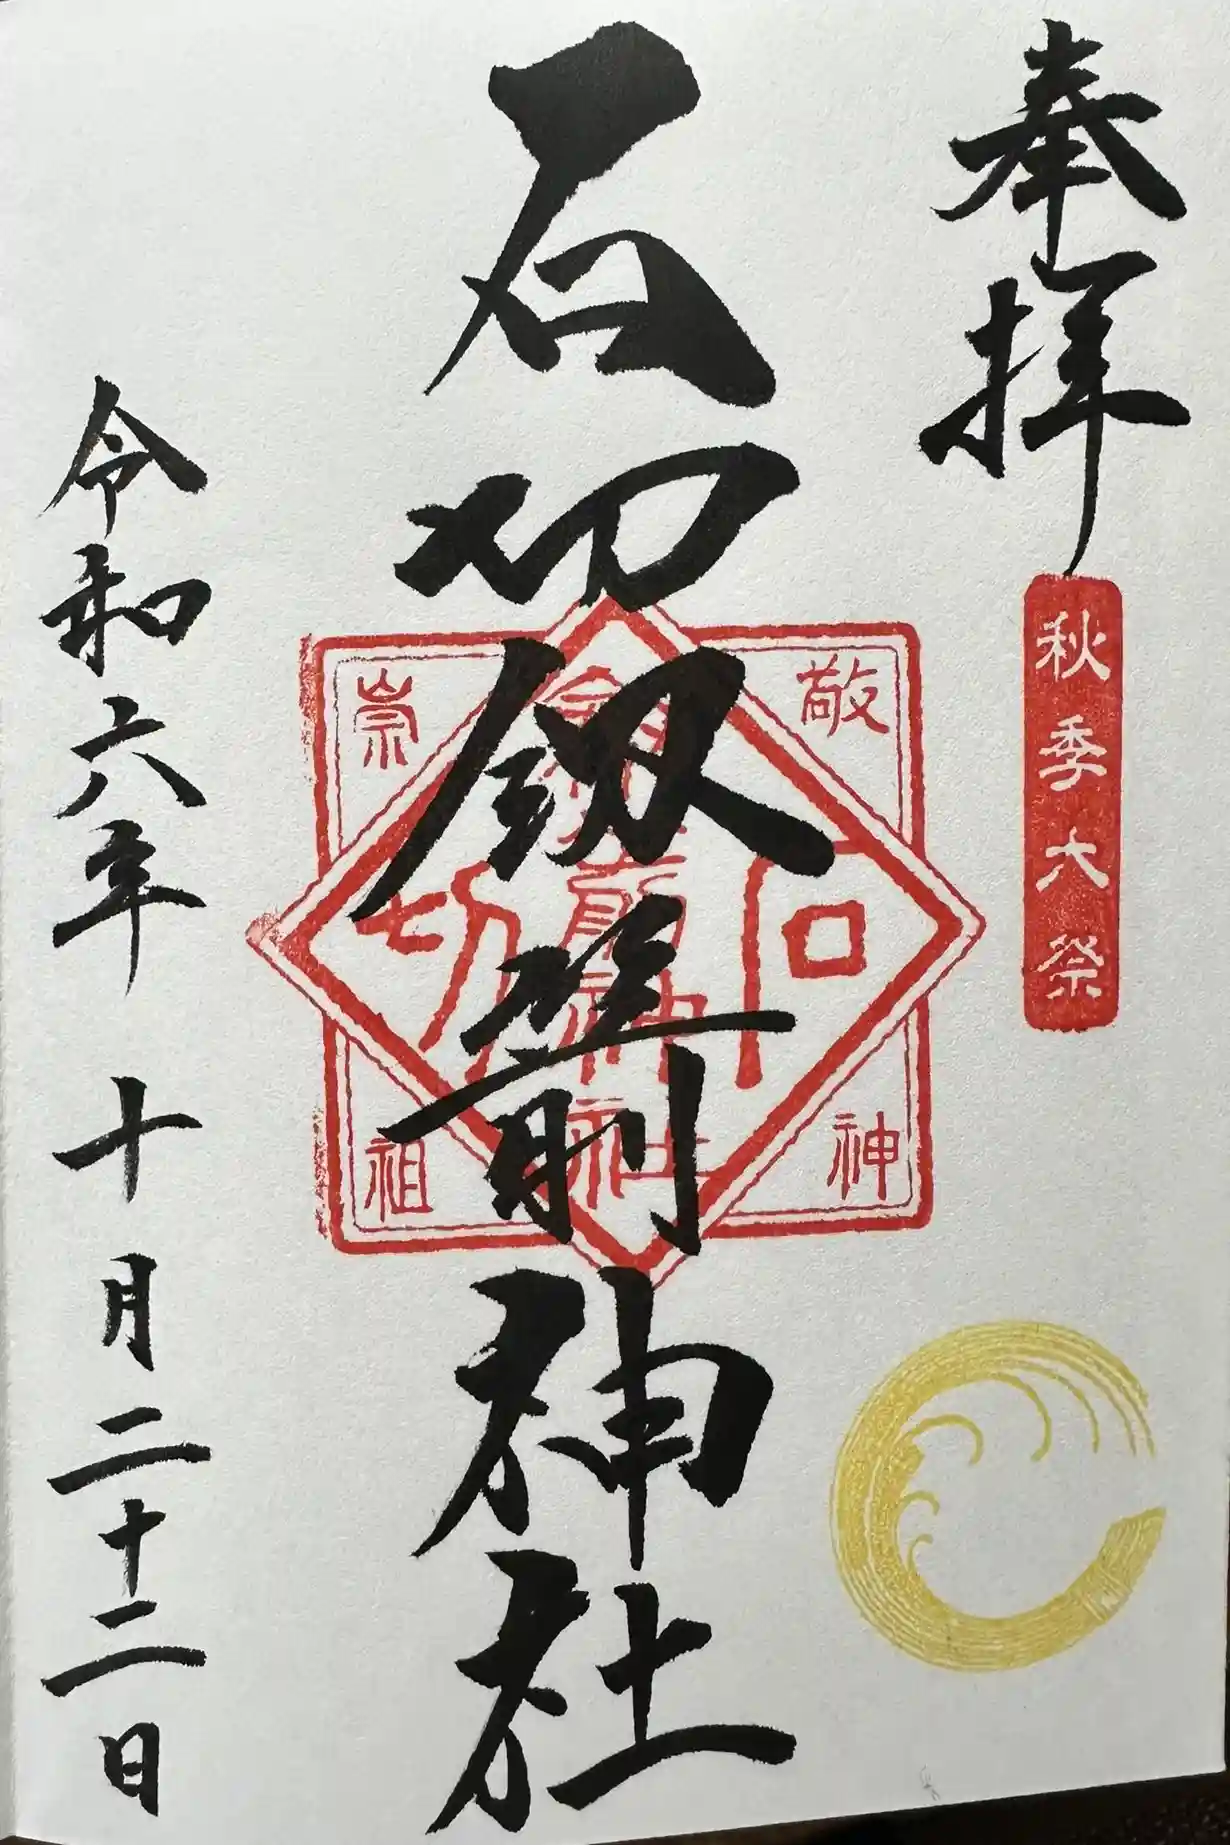 奉拝
秋季大祭
石切劔箭神社
敬神
崇祖
石切
劔箭神社
令和六年 十月二十二日